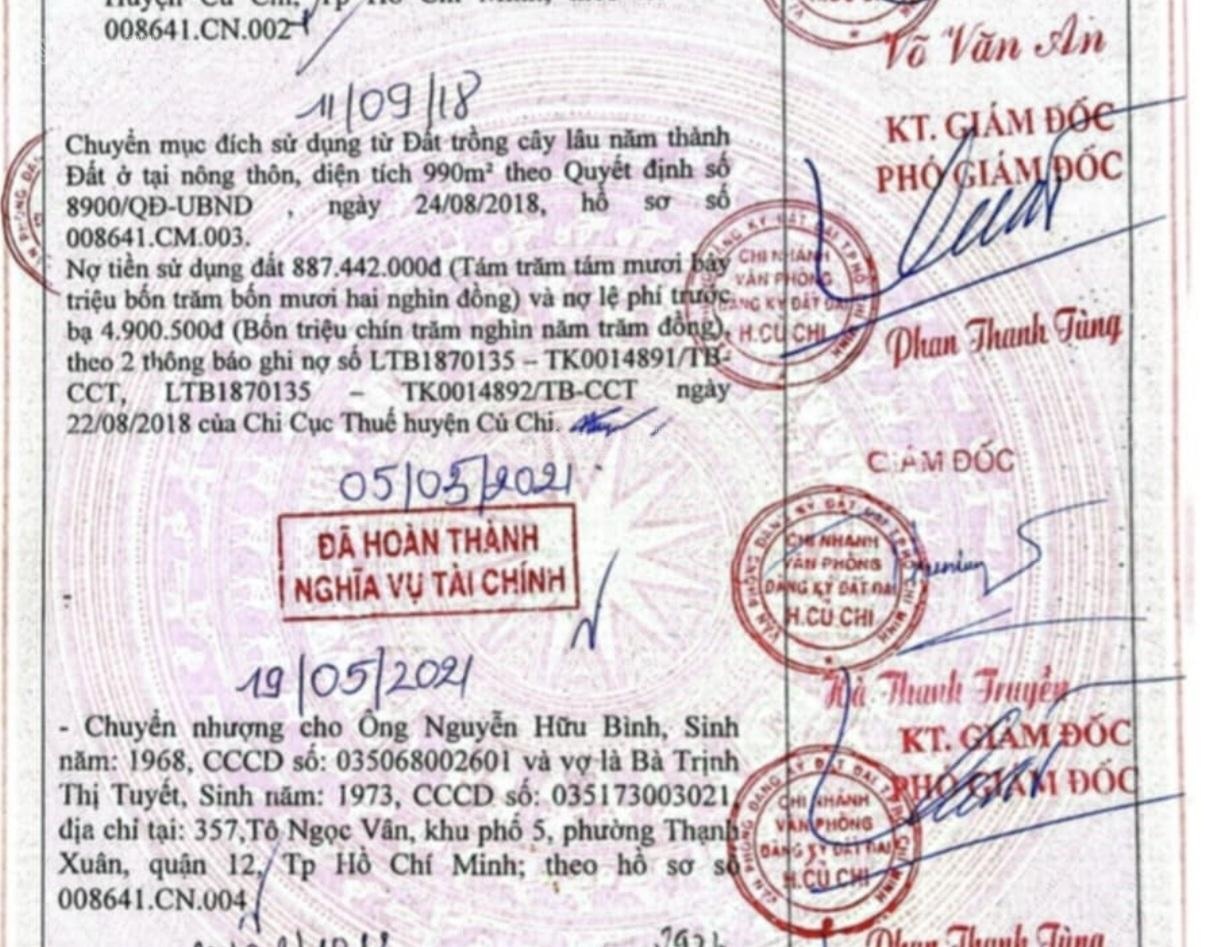 008641.CN.002
Võ Văn An
11/09/18
Chuyển mục đích sử dụng từ Đất trồng cây lâu năm thành
Đất ở tại nông thôn, diện tích 990m² theo Quyết định số
8900/QĐ-UBND , ngày 24/08/2018, hồ sơ số
008641.CM.003.
Nợ tiền sử dụng đất 887.442.000đ (Tám trăm tám mươi bảy
triệu bốn trăm bốn mươi hai nghìn đồng) và nợ lệ phí trước
bạ 4.900.500đ (Bốn triệu chín trăm nghìn năm trăm đồng),
theo 2 thông báo ghi nợ số LTB1870135 – TK0014891/TB-
CCT, LTB1870135 – TK0014892/TB-CCT ngày
22/08/2018 của Chi Cục Thuế huyện Củ Chi.
KT. GIÁM ĐỐC
PHÓ GIÁM ĐỐC
CHI NHÁNH
VĂN PHÒNG
ĐĂNG KÝ ĐẤT ĐAI
H.CỦ CHI
Phan Thanh Tùng
05/03/2021
ĐÃ HOÀN THÀNH
NGHĨA VỤ TÀI CHÍNH
GIÁM ĐỐC
VĂN PHÒNG ĐĂNG KÝ ĐẤT ĐAI T.PHỐ HỒ CHÍ MINH
CHI NHÁNH
VĂN PHÒNG
ĐĂNG KÝ ĐẤT ĐAI
H.CỦ CHI
Hà Thanh Truyền
19/05/2021
- Chuyển nhượng cho Ông Nguyễn Hữu Bình, Sinh
năm: 1968, CCCD số: 035068002601 và vợ là Bà Trịnh
Thị Tuyết, Sinh năm: 1973, CCCD số: 035173003021,
địa chỉ tại: 357,Tô Ngọc Vân, khu phố 5, phường Thạnh
Xuân, quận 12, Tp Hồ Chí Minh; theo hồ sơ số
008641.CN.004
KT. GIÁM ĐỐC
PHÓ GIÁM ĐỐC
VĂN PHÒNG ĐĂNG KÝ ĐẤT ĐAI T.PHỐ HỒ CHÍ MINH
CHI NHÁNH
VĂN PHÒNG
ĐĂNG KÝ ĐẤT ĐAI
H.CỦ CHI
Phan Thanh Tùng